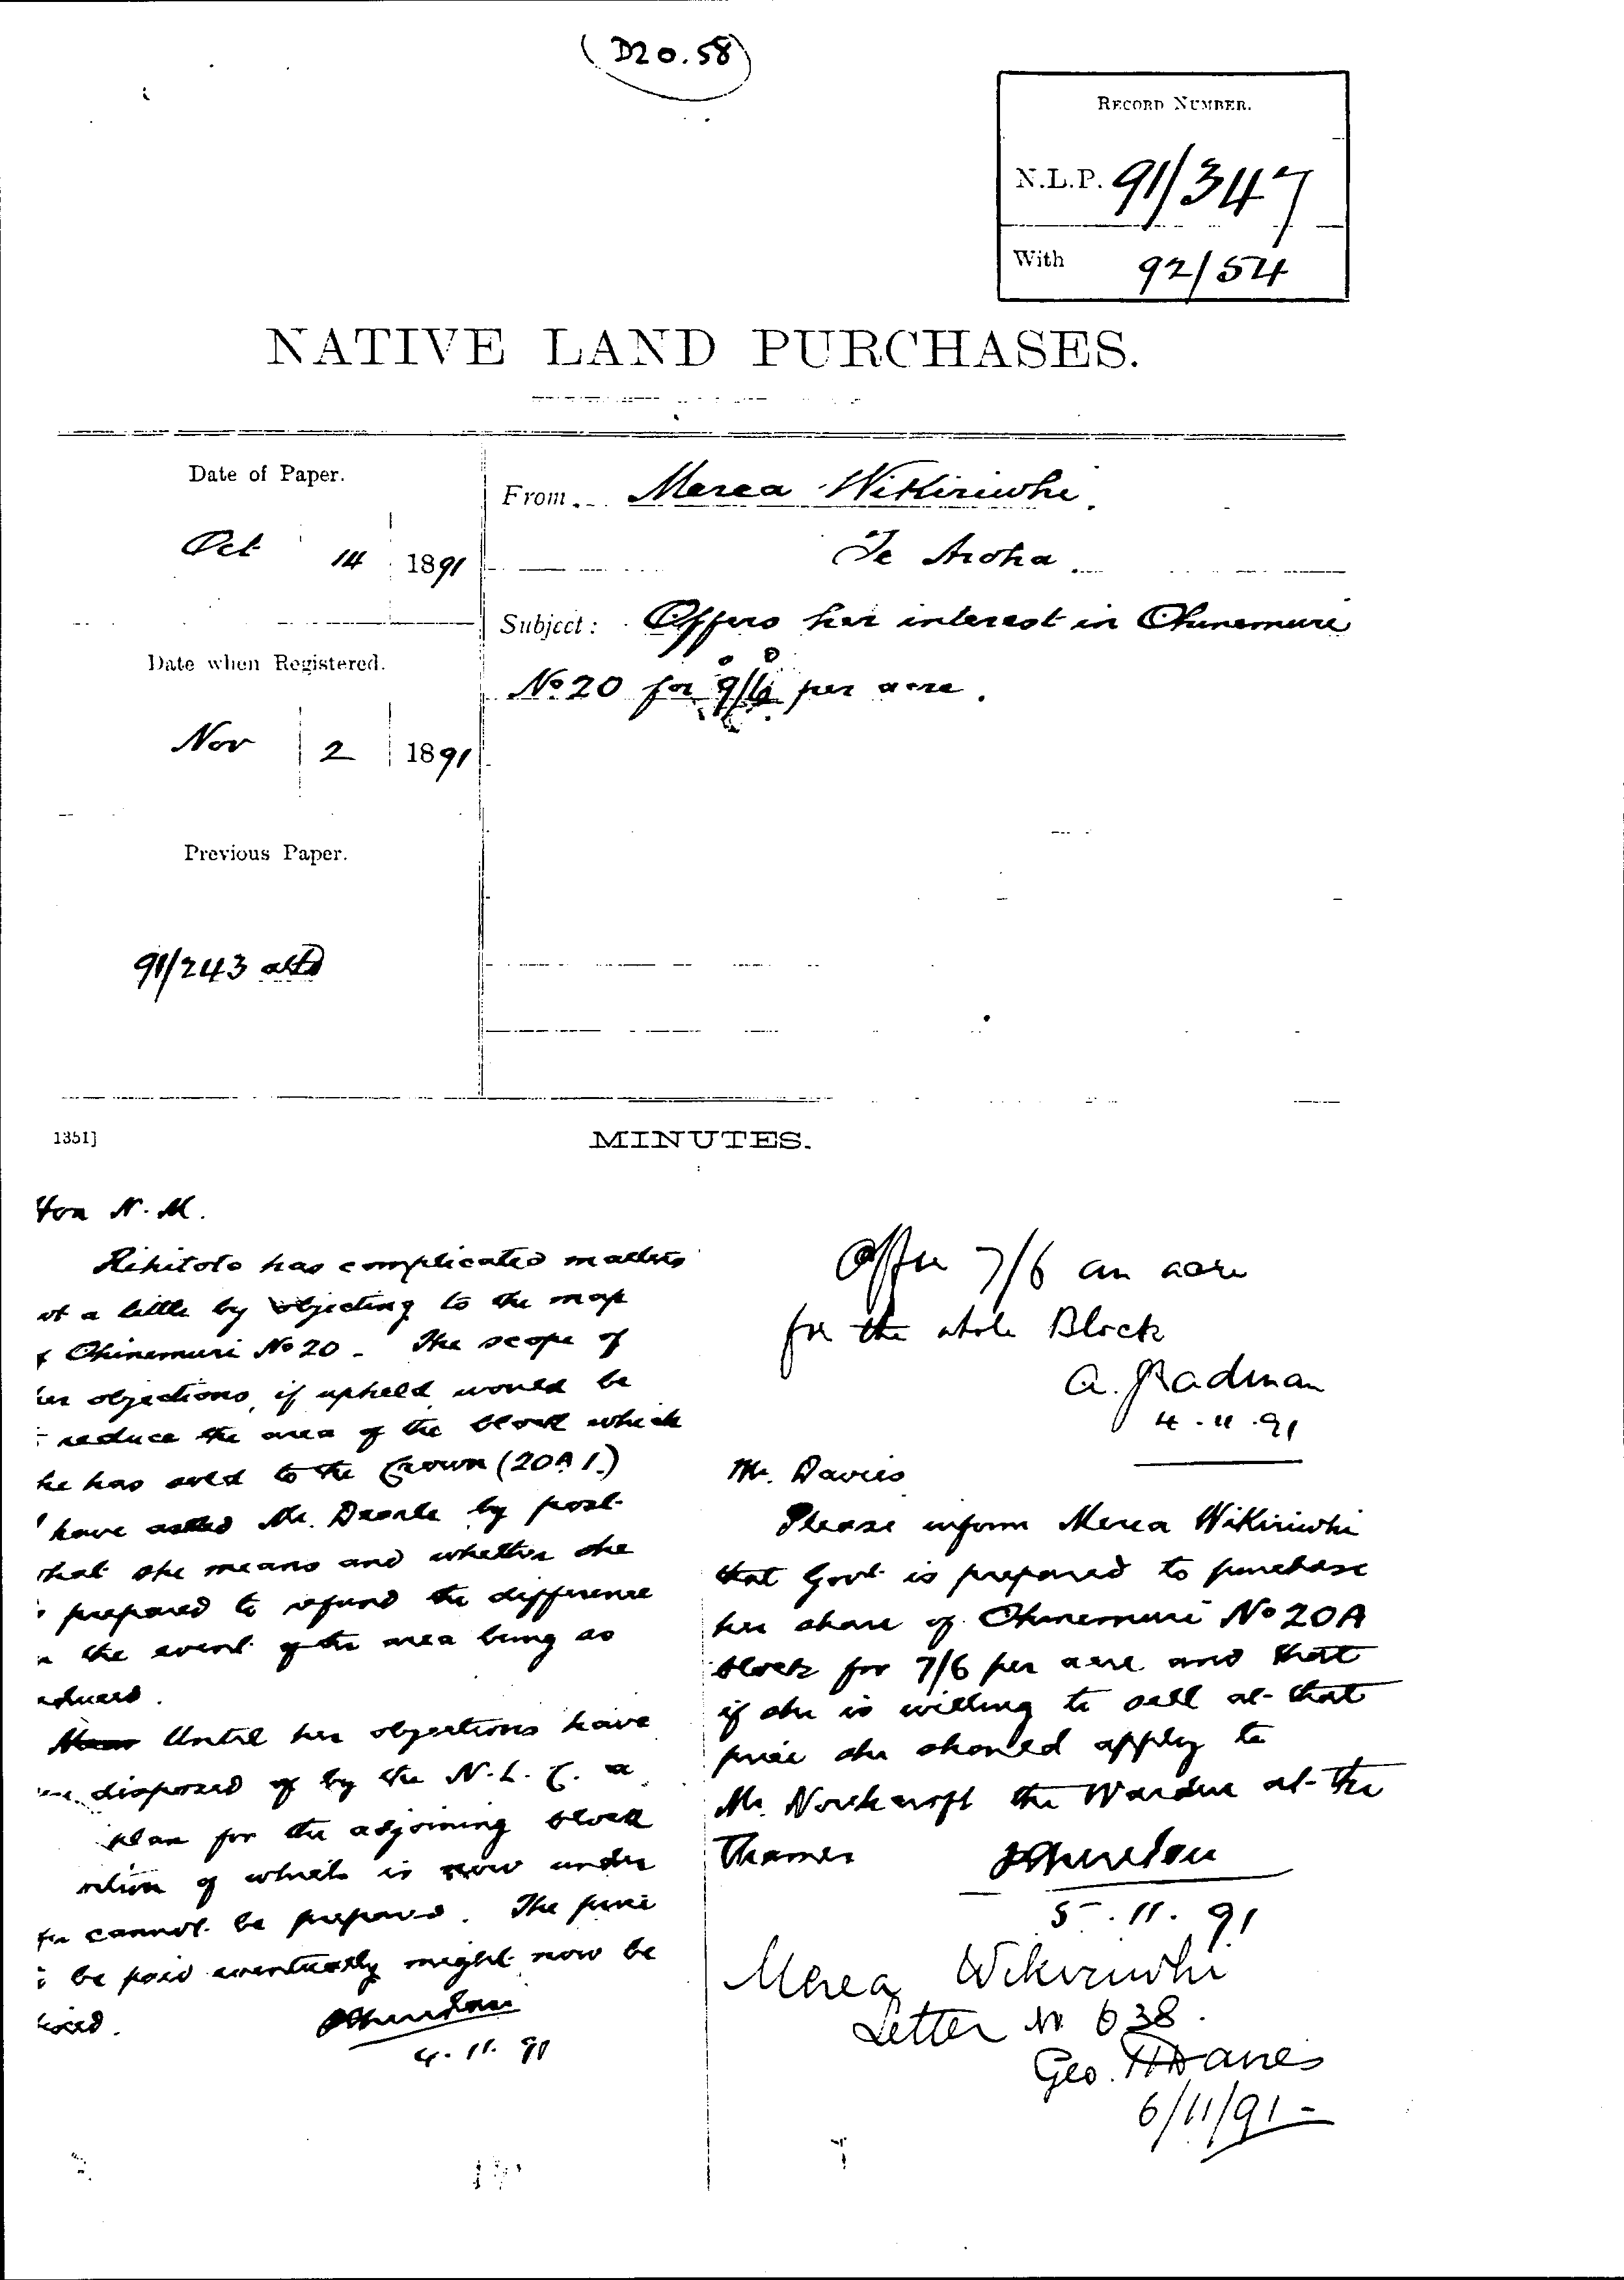 (D20.58)
RECORD NUMBER.
N.L.P. 91/347
With 92/54
NATIVE LAND PURCHASES.
Date of Paper.
Oct 14 1891
Date when Registered.
Nov 2 1891
Previous Paper.
91/243
From Merea Wikiriwhi.
Te Aroha
Subject: Offers her interest in Ohinemuri
No 20 for per acre.
1351]
MINUTES.
Hon N. M.
has complicated matters
a little by objecting to the map
Ohinemuri No 20 - The scope of
her objections, if upheld would be
reduce the area of the block which
she has sold to the Crown (20A 1.)
have asked Mr. by post
what she means and whether she
prepared to refund the difference
the event of the area being so
reduced.
Until her objections have
disposed of by the N. L. C. a
plan for the adjoining block
of which is now under
cannot be prepared. The price
be paid eventually might now be
fixed.
4. 11. 91
Offer 7/6 an acre
for the whole Block
A. Cadman
4. 11. 91
Mr. Davies
Please inform Merea Wikiriwhi
that Govt is prepared to purchase
her share of Ohinemuri No 20A
block for 7/6 per acre and that
if she is willing to sell at that
price she should apply to
Mr. Northcroft the Warden at the
Thames
5. 11. 91
Merea Wikiriwhi
Letter No 638.
Geo. Davies
6/11/91